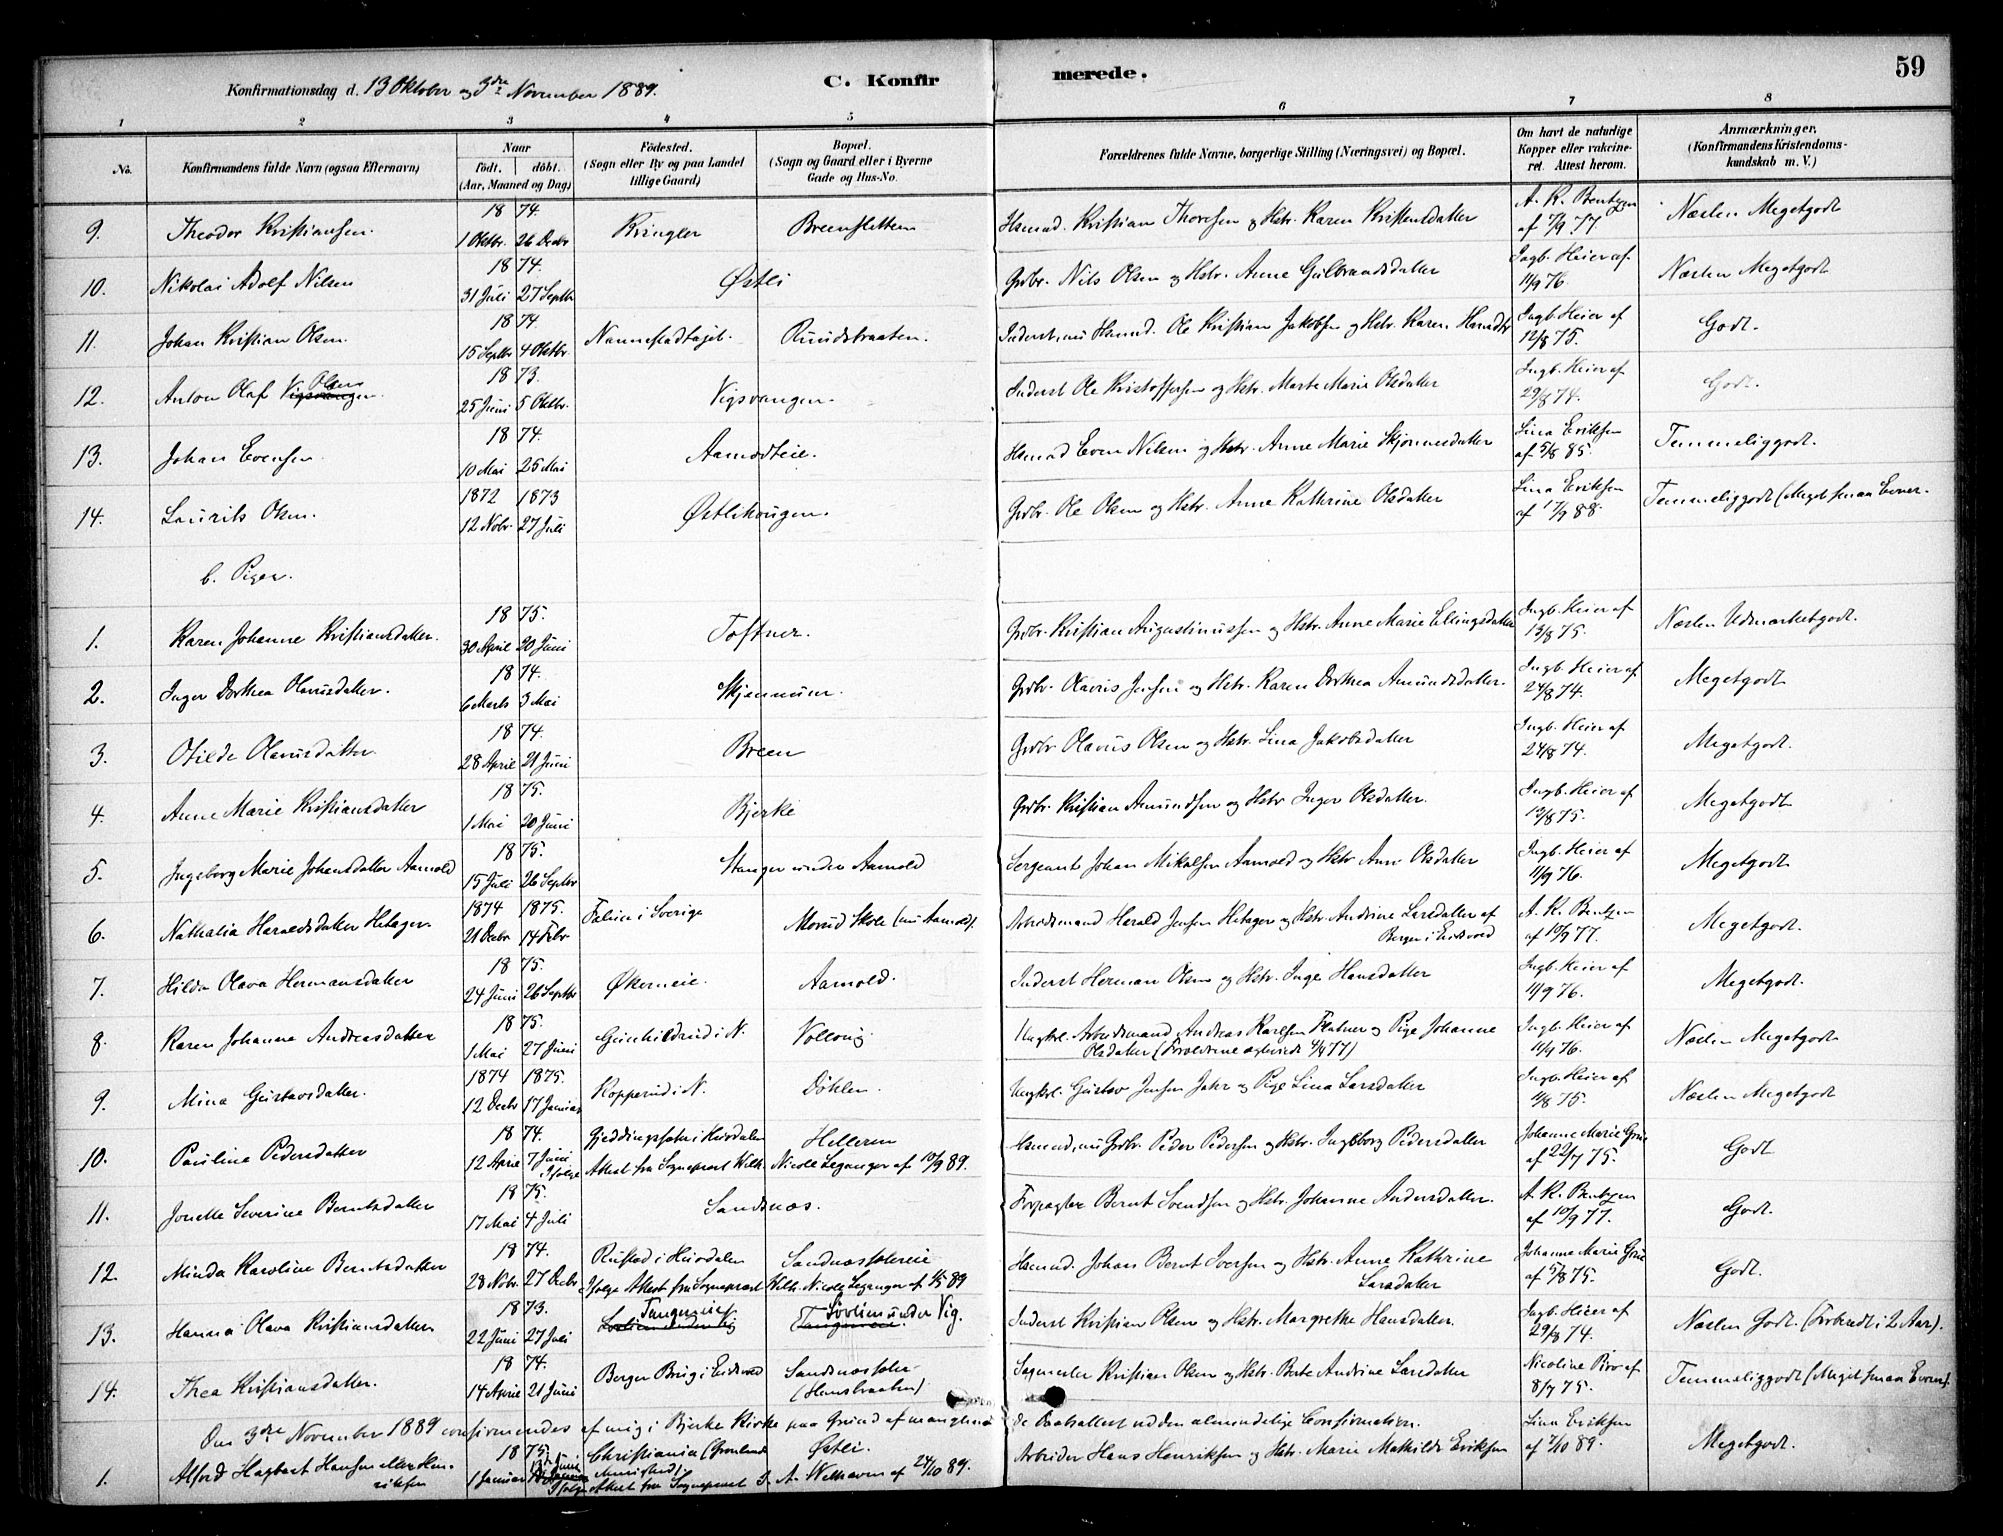 59
Konfirmationsdag d. 13 Oktober og 3die November 1889.
C. Konfir merede.
1 2 3 4 5 6 7 8
No. Konfirmandens fulde Navn (ogsaa Efternavn) Naar født. døbt. (Aar, Maaned og Dag) Fødested. (Sogn eller By og paa Landet tillige Gaard) Bopæl. (Sogn og Gaard eller i Byerne Gade og Hus-No. Forældrenes fulde Navne, borgerlige Stilling (Næringsvei) og Bopæl. Om havt de naturlige Kopper eller vakcineret. Attest herom. Anmærkninger. (Konfirmandens Kristendomskundskab m. V.)
9. Theodor Kristiansen. 1874. 1 Oktbr. 26 Decbr Kringler Breenfletten Husmd. Kristian Thoresen og Hstr. Karen Kristensdatter A. K. Bentzen af 7/9 77. Næsten Megetgodt
10. Nikolai Adolf Nilsen 1874. 31 Juli 27 Septbr Østli Grdbr. Nils Olsen og Hstr. Anne Gulbrandsdatter Ingb. Heier af 11/9 76. Næsten Megetgodt
11. Johan Kristian Olsen. 1874 15 Septbr 4 Oktbr. Nannestad Ruudsbraaten. Inderst, nu Husmd. Ole Kristian Jakobsen og Hstr. Karen Ingb. Heier af 12/8 75. Godt.
12. Anton Olaf Olsen 1873. 25 Juni 5 Oktbr. Vigsvangen. Inderst Ole Kristoffersen og Hstr. Marte Marie Olsdatter Ingb. Heier af 29/8 74. Godt.
13. Johan Evensen 1874. 10 Mai 25 Mai Aamodteie. Husmd Even Nilsen og Hstr. Anne Marie Skjønnesdatter Lina Eriksen af 5/8 85. Temmeliggodt.
14. Laurits Olsen. 1872 1873 12 Nobr. 27 Juli Østlihougen. Grdbr. Ole Olsen og Hstr. Anne Kathrine Olsdatter Lina Eriksen af 17/9 88. Temmeliggodt (Meget smaa Evner.
b. Piger.
1. Karen Johanne Kristiansdatter. 1875. 30 April 20 Juni Toftner. Grdbr. Kristian Augustinussen og Hstr. Anne Marie Ellingsdatter Ingb. Heier af 13/8 75. Næsten Udmærketgodt.
2. Inger Dorthea Olausdatter. 1874. 6 Marts 3 Mai Skjønnum. Grdbr. Olaus Jensen og Hstr. Karen Dorthea Amundsdatter. Ingb. Heier af 24/8 74. Megetgodt
3. Otilde Olausdatter 1874. 28 April 21 Juni Breen Grdbr Olaus Olsen og Hstr. Lina Jakobsdatter Ingb. Heier af 24/8 74. Megetgodt.
4. Anne Marie Kristiansdatter 1875. 1 Mai 20 Juni Bjerke Grdbr. Kristian Amundsen og Hstr. Inger Olsdatter. Ingb. Heier af 12/8 75. Megetgodt
5. Ingeborg Marie Johansdatter Aamold 1875. 15 Juli 26 Septbr Stanger under Aamold Sergeant Johan Mikalsen Aamold og Hstr Anne Olsdatter Ingb. Heier af 11/9 76. Megetgodt
6. Nathalia Haraldsdatter Hetager. 1874 1875. 21 Decbr. 14 Febr. Falun i Sverige Morud Skole (nu Aamold). Arbeidsmand Harald Jensen Hetager og Hstr. Andrine Larsdatter af Bergen i Eidsvold A. K. Bentzen af 10/9 77. Megetgodt.
7. Hilda Olava Hermansdatter 1875. 24 Juni 26 Septbr Økerneie. Aamold. Inderst Herman Olsen og Hstr. Inge Hansdatter Ingb. Heier af 11/9 76. Megetgodt.
8. Karen Johanne Andreasdatter 1875. 1 Mai 27 Juni Gunhildrud i N. Vollaug Ungkl. Arbeidsmand Andreas Karlsen Flatner og Pige Johanne Olsdatter (Forældrene ægteviede 4/4 77) Ingb. Heier af 11/9 76. Næsten Megetgodt
9. Mina Gustavsdatter. 1874 1875. 12 Decbr 17 Januar Kopperud i N. Døhlen. Ungkl. Gustav Jensen Jahr og Pige Lina Larsdatter Ingb. Heier af 11/8 75. Næsten Megetgodt
10. Pauline Pedersdatter 1874. 12 April 7 Juni Gjeddingsæter i Hurdalen Helleren Husmd, nu Grdbr. Peder Pedersen og Hstr. Ingeborg Pedersdatter Johanne Marie Grue af 22/7 75. Godt
Ifølge Attest fra Sognepræst Wilh. Nicolai Leganger af 10/9 89.
11. Jonette Severine Berntsdatter 1875. 17 Mai 4 Juli Sandsnæs. Forpagter Bernt Svendsen og Hstr. Johanne Andersdatter. A. K. Bentzen af 10/9 77. Godt.
12. Minda Karoline Berntsdatter 1874. 28 Nobr. 27 Decbr Rustad i Hurdalen Sandnæssætereie Husmd. Johan Bernt Iversen og Hstr. Anne Kathrine Larsdatter Johanne Marie Grue af 5/8 75. Godt.
Ifølge Attest fra Sognepræst Wilh. Nicolai Leganger af 4/5 89
13. Hanna Olava Kristiansdatter. 1873. 22 Juni 27 Juli Tangeneie Løvlien under Vig. Inderst Kristian Olsen og Hstr. Margrethe Hansdatter. Ingb. Heier af 29/8 74. Næsten Godt. (Forberedt i 2 Aar).
14. Thea Kristiansdatter. 1874. 14 April 21 Juni Berger Brug i Eidsvold Sandnæssæter (Hansbraaten) Sagmester Kristian Olsen og Hstr. Berte Andrine Larsdatter Nicoline Piro af 8/7 75. Temmeliggodt (Meget smaa Evner).
Den 3die November 1889 confirmeredes af mig i Bjerke Kirke paa Grund af manglende Daabsattest ud den almindelige Confirmation.
1. Alfred Hagbart Hansen Henriksen 1875. 1 Januar 13 Juni Christiania (Grønland Menighed) Østli. Arbeider Hans Henriksen og Hstr. Marie Mathilde Eriksen Lina Eriksen af 7/10 89. Megetgodt.
Ifølge Attest fra Sognepræst J. A. Welhaven af 24/10 89.